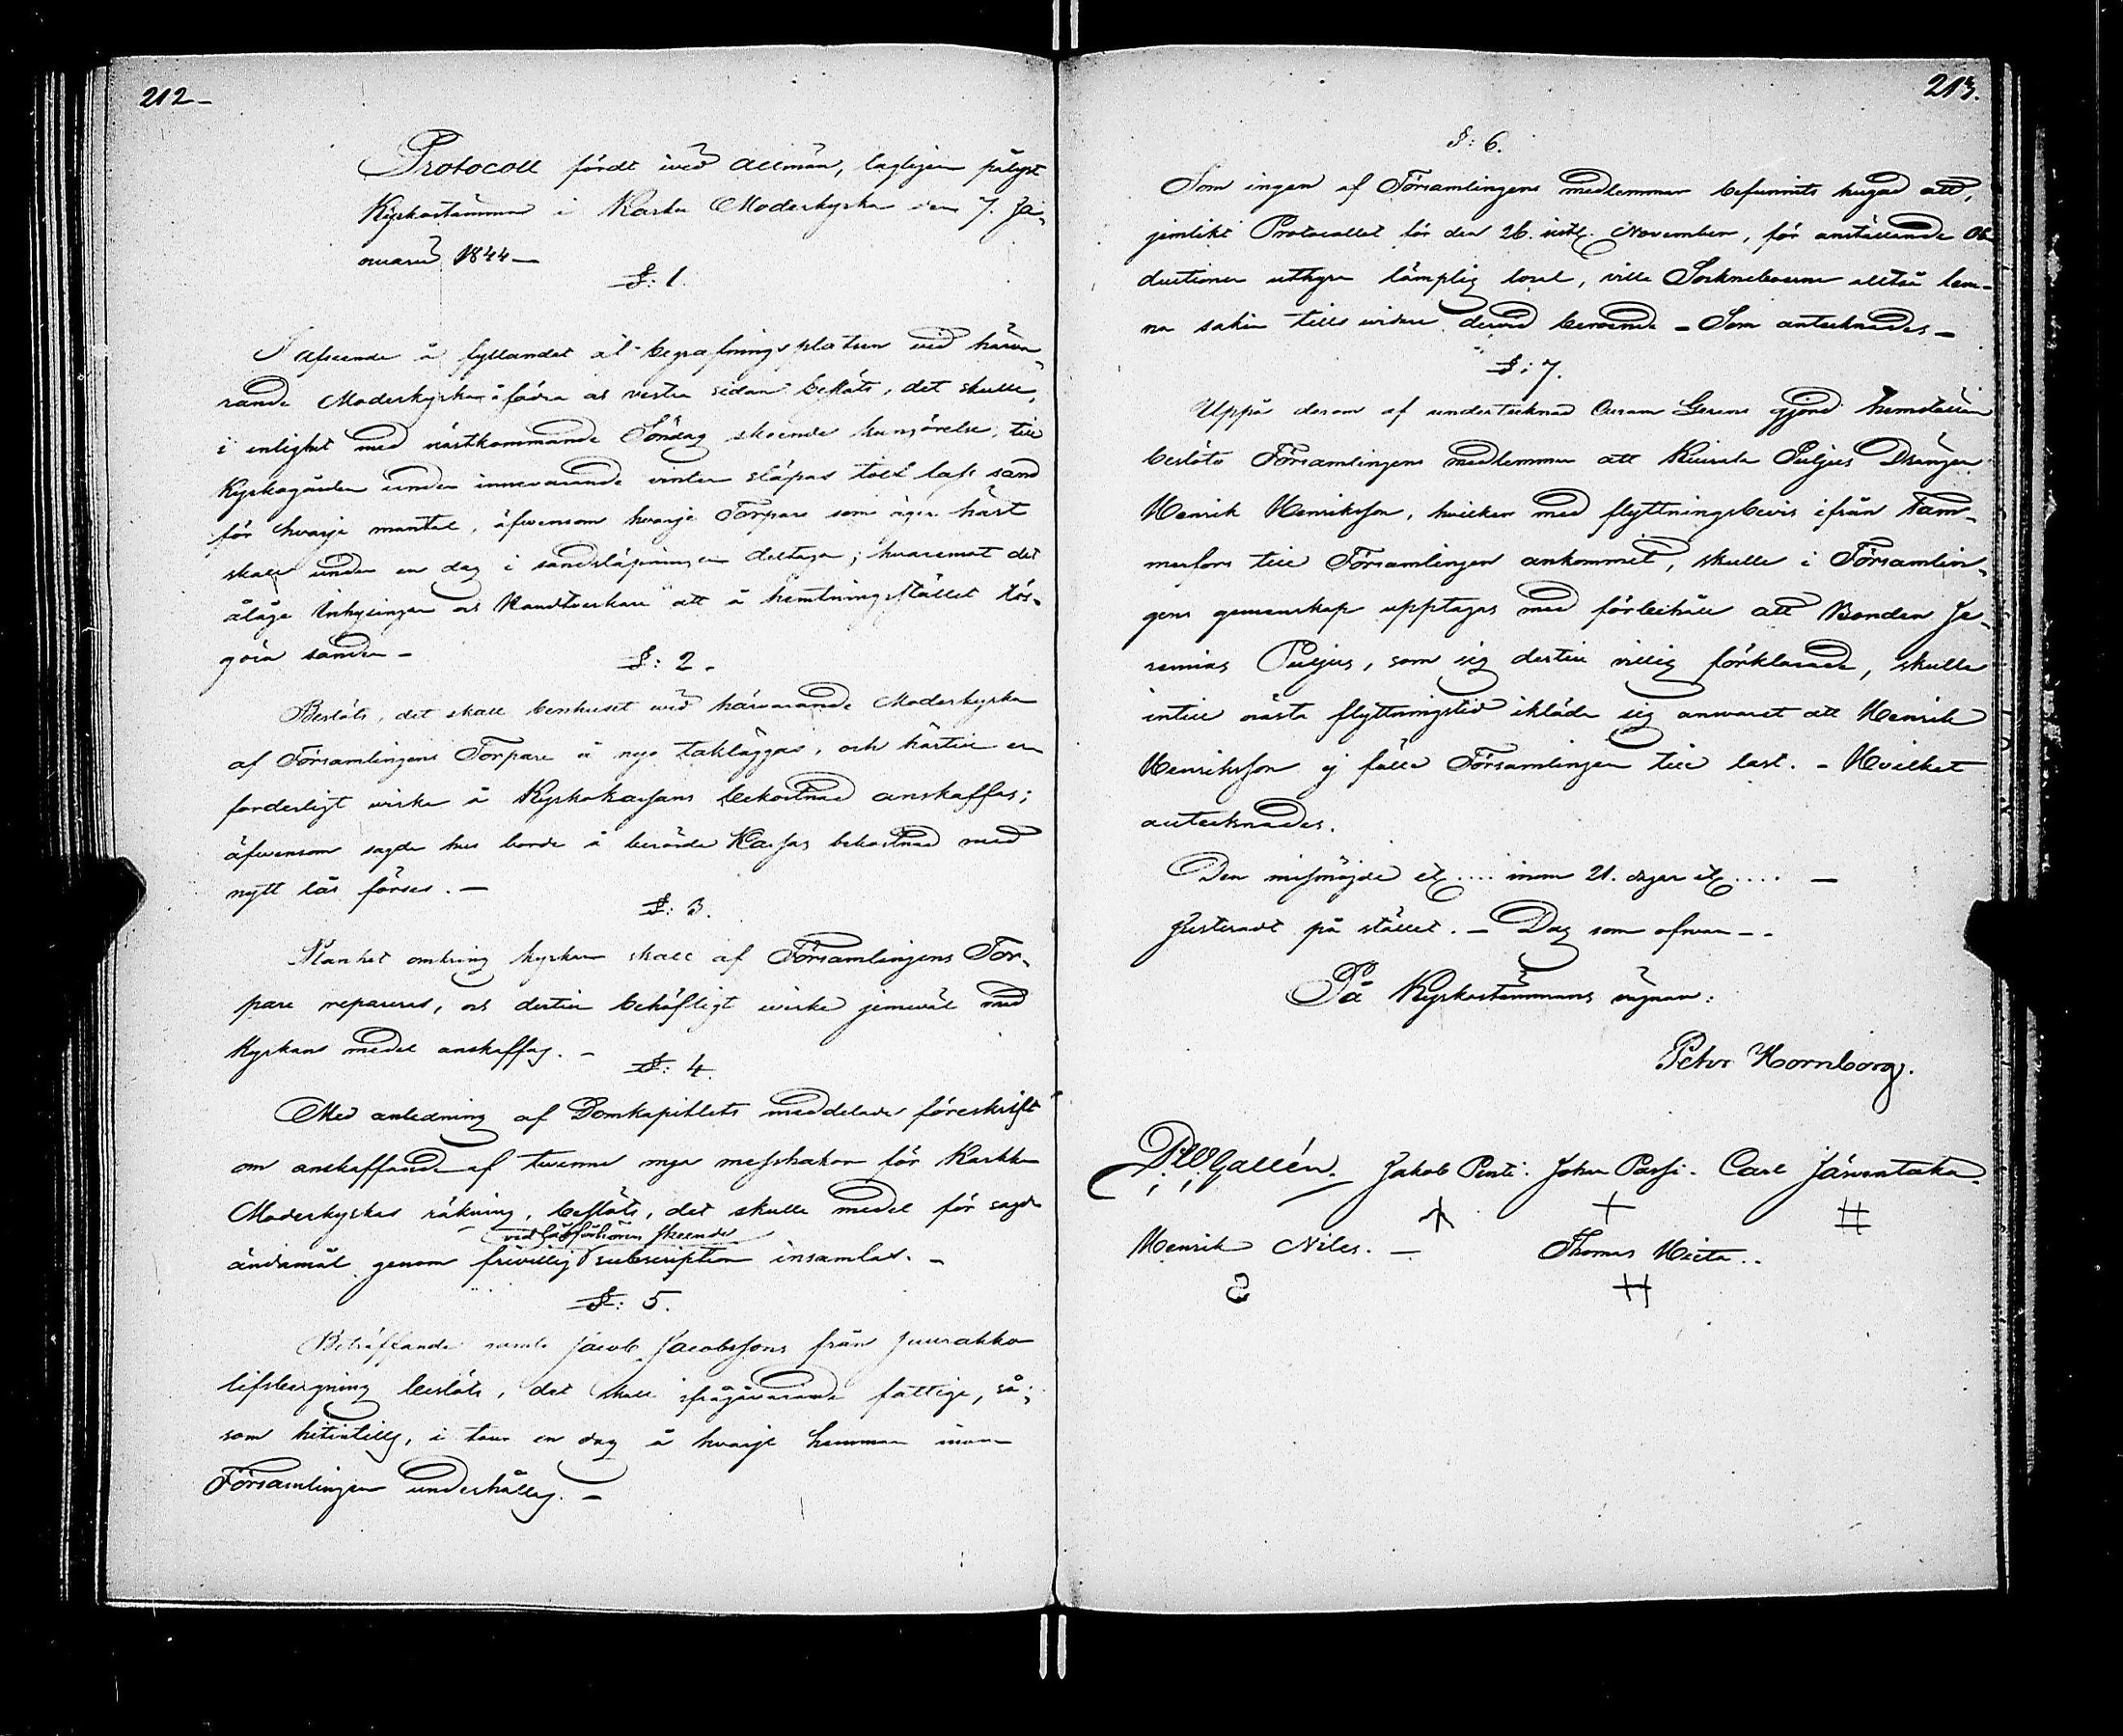 212-
Protocoll fördt wid allmän, lagligen pålyst
Kyrkostämma i Karku Moderkyrka den 7. Ja-
nuarii 1844-
§: 1.
I afseende å fyllandet af begrafningsplatsen wid härva-
rande Moderkyrka å södra och vestra sidan beslöts, det skulle,
i enlighet med nästkommande Söndag skeende kungörelse, till
Kyrkogården under innewarande winter släpas tolf lass sand
för hvarje mantal, äfwensom hvarje Torpare som äger häst
skall under en dag i sandsläpningen deltaga; hvaremot det
ålåge Inhysingar och Handtverkare att å hemtningsstället lös-
göra sanden-
§: 2.
Beslöts, det skall benhuset wid härvarande Moderkyrka
af Församlingens Torpare å nyo takläggas, och härtill er-
forderligt wirke å Kyrkokassans bekostnad anskaffas;
äfwensom sagde hus borde å berörde Kassas bekostnad med
nytt lås förses. -
§: 3.
Planket omkring kyrkan skall af Församlingens Tor-
pare repareras, och dertill behöfligt wirke jemwäl med
Kyrkans medel anskaffas. -
§: 4.
Med anledning af Domkapitlets meddelade föreskrift
om anskaffande af twenne nya messhakar för Karku
Moderkyrkas räkning, beslöts, det skulle medel för sagde
vid Läsförhören skeende
ändamål genom frivillig subscription insamlas. -
§: 5.
Beträffande Jacob Jacobssons från Juurakko
lifsbergning beslöts, det skall ifrågavarande fattige, så-
som hitintills, i tour en dag å hvarje hemman inom
Församlingen underhållas. -
213.
§: 6.
Som ingen af Församlingens medlemmar befunnits hugad att,
jemlikt Protocollet för den 26. sistl. November, för anställande Ob-
ductioner uthyra lämplig local, ville Sockneboerne alltså lem-
na saken tills widare derwid beroende - Som antecknades -
§: 7.
Uppå derom af undertecknad Curam Gerens gjord hemställan
beslöto Församlingens medlemmar att Kiurala Puljus Drängen
Henrik Henriksson, hvilken med flyttningsbevis ifrån Tam-
merfors till Församlingen ankommit, skulle i Församlin-
gens gemenskap upptagas med förbehåll att Bonden Je-
remias Puljus, som sig dertill villig förklarade, skulle
intill nästa flyttningstid ikläda sig answaret att Henrik
Henriksson ej fölle Församlingen till last. - Hvilket
antecknades.
Den missnöjde etc.... inom 21. dagar etc.... -
Justeradt på stället. - Dag som ofwan - -
På Kyrkostämmans vägnar:
Petr Hornborg.
P. W. Gallén. Jakob Penti. Johan Passi. Carl Järventaka.
Henrik Niles. - Thomas Hieta..